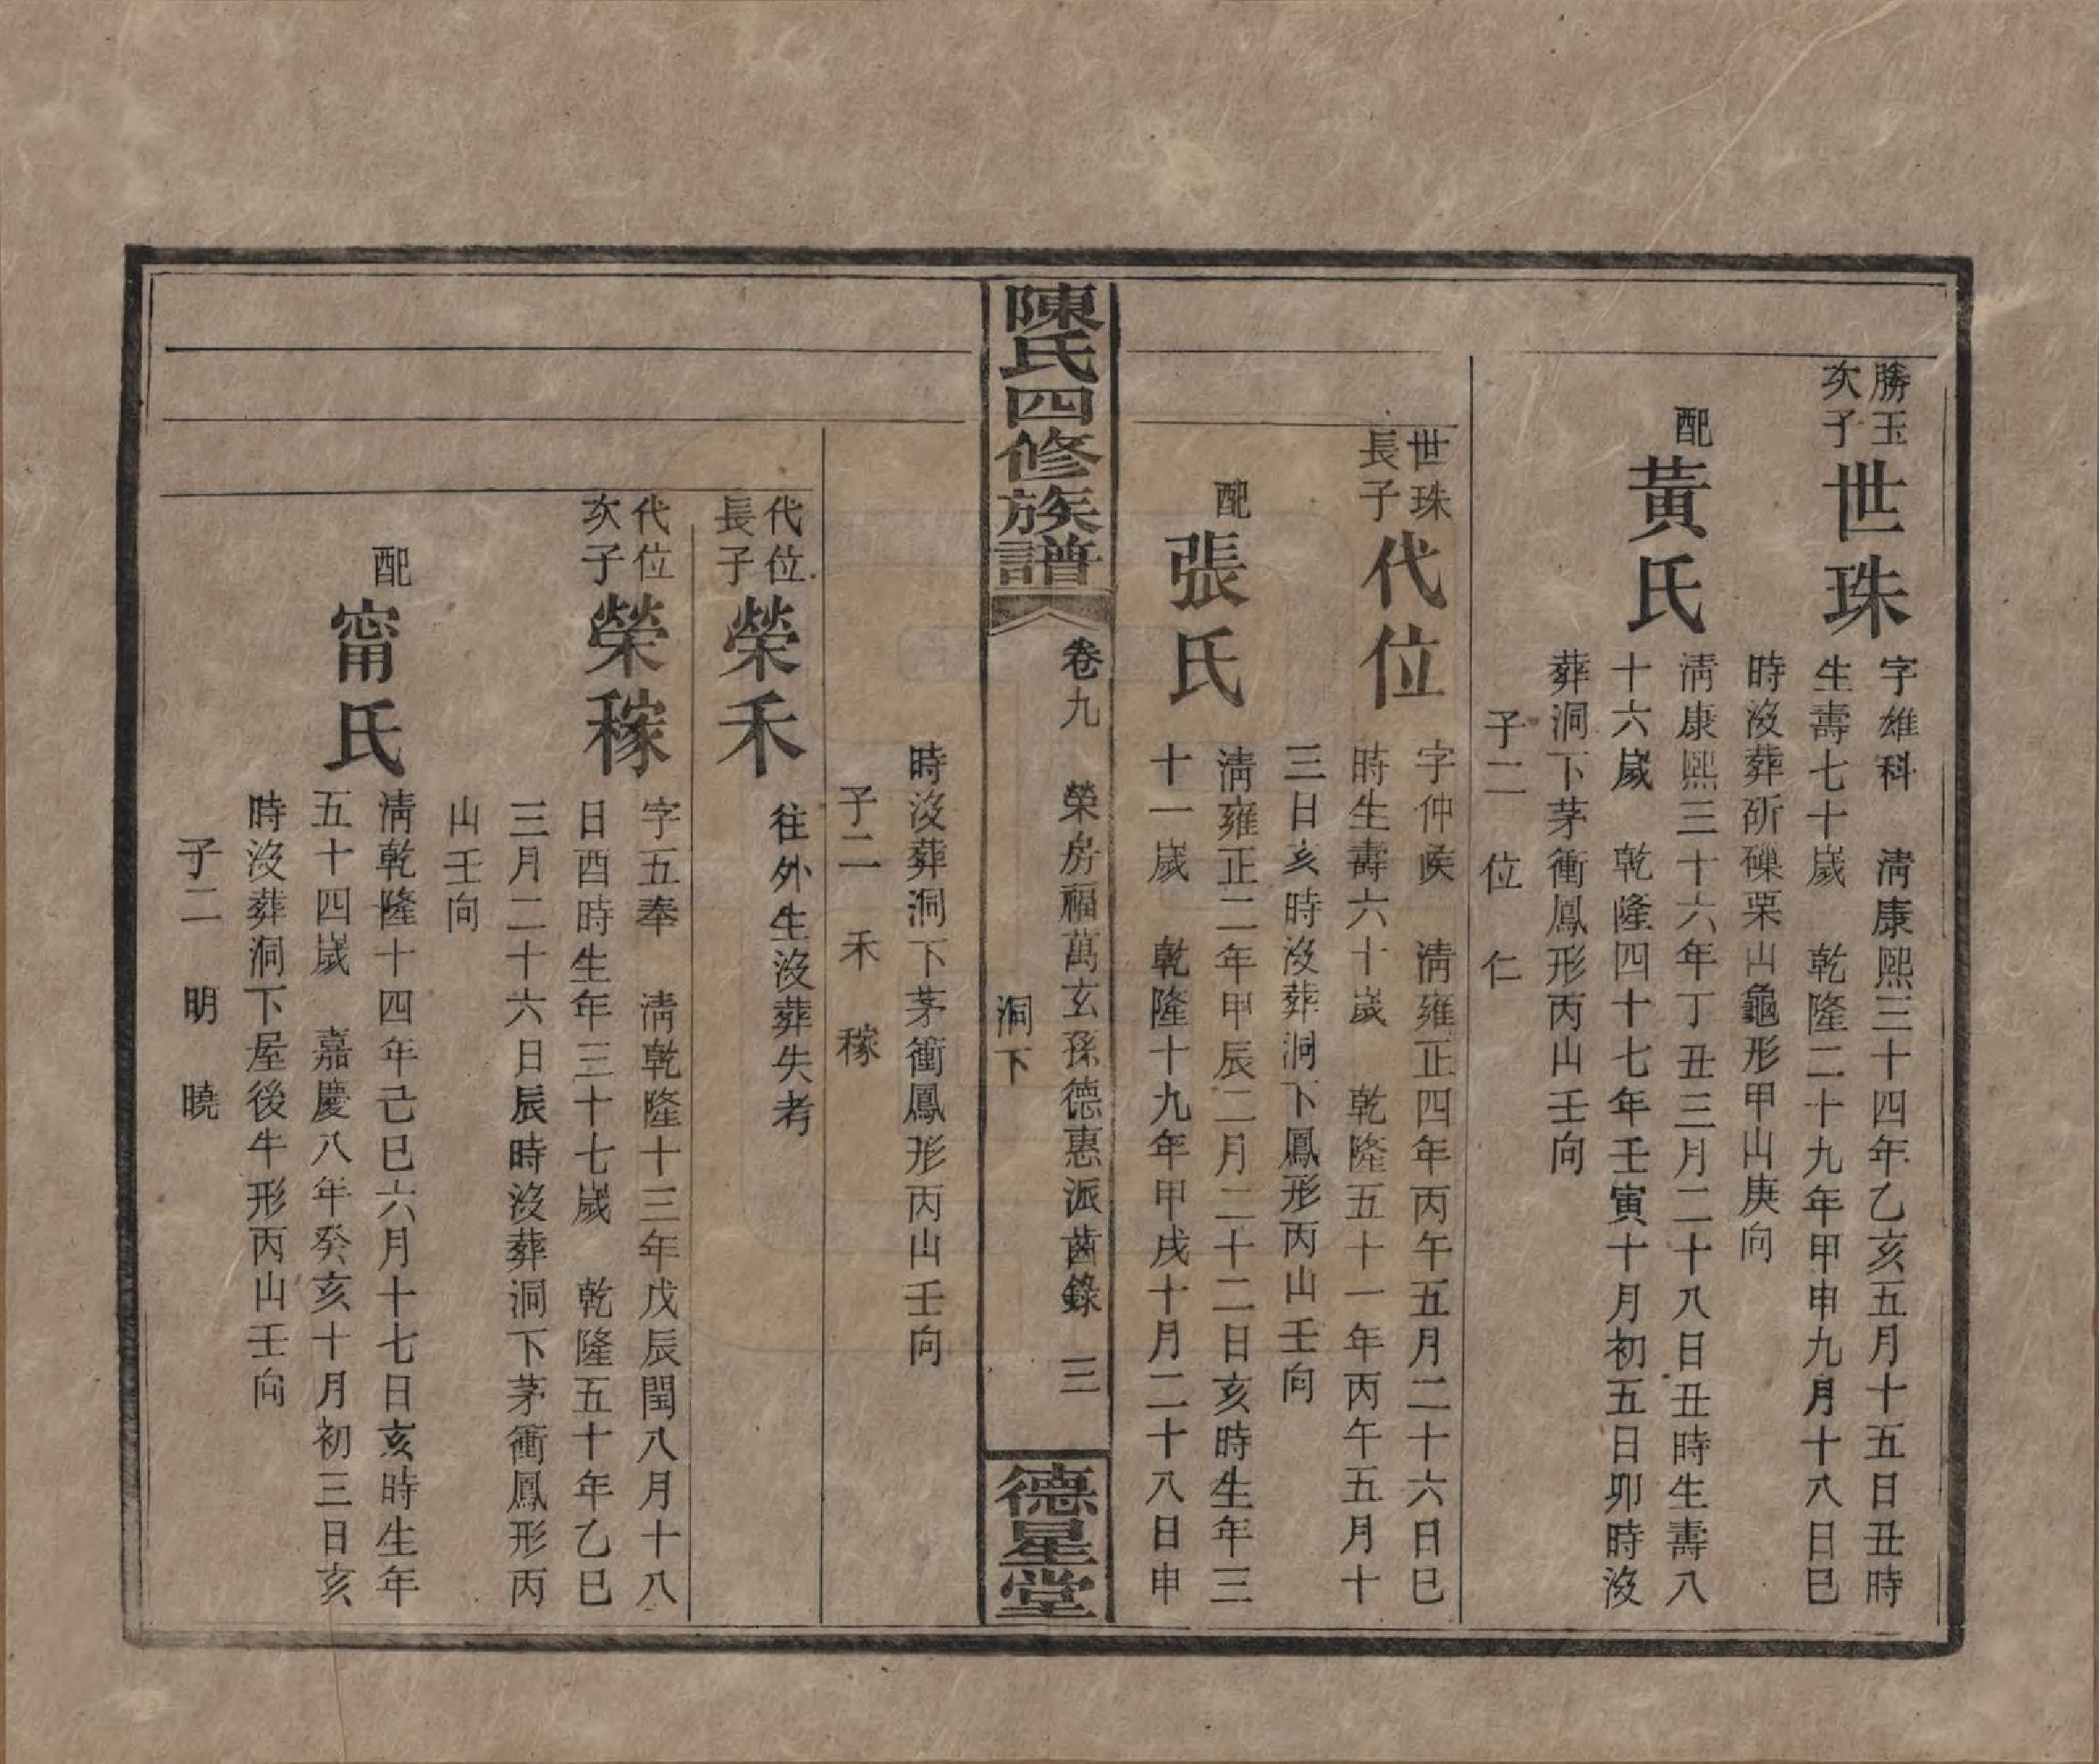 勝玉
次子
世珠
字雄科　清康熙三十四年乙亥五月十五日丑時
生壽七十歲　乾隆二十九年甲申九月十八日巳
時沒葬斫磏栗山龜形甲山庚向
配
黃氏
清康熙三十六年丁丑三月二十八日丑時生壽八
十六歲　乾隆四十七年壬寅十月初五日卯時沒
葬洞下茅衝鳳形丙山壬向
子二　位　仁
世珠
長子
代位
字仲矦　清雍正四年丙午五月二十六日巳
時生壽六十歲　乾隆五十一年丙午五月十
三日亥時沒葬洞下鳳形丙山壬向
配
張氏
清雍正二年甲辰二月二十二日亥時生年三
十一歲　乾隆十九年甲戌十月二十八日申
陳氏四修族譜
卷九　榮房福萬玄孫德惠派齒錄　三
洞下
德星堂
時沒葬洞下茅衝鳳形丙山壬向
子二　禾　稼
代位
長子
榮禾
往外生沒葬失考
代位
次子
榮稼
字五奉　清乾隆十三年戊辰閏八月十八
日酉時生年三十七歲　乾隆五十年乙巳
三月二十六日辰時沒葬洞下茅衝鳳形丙
山壬向
配
甯氏
清乾隆十四年己巳六月十七日亥時生年
五十四歲　嘉慶八年癸亥十月初三日亥
時沒葬洞下屋後牛形丙山壬向
子二　明　曉